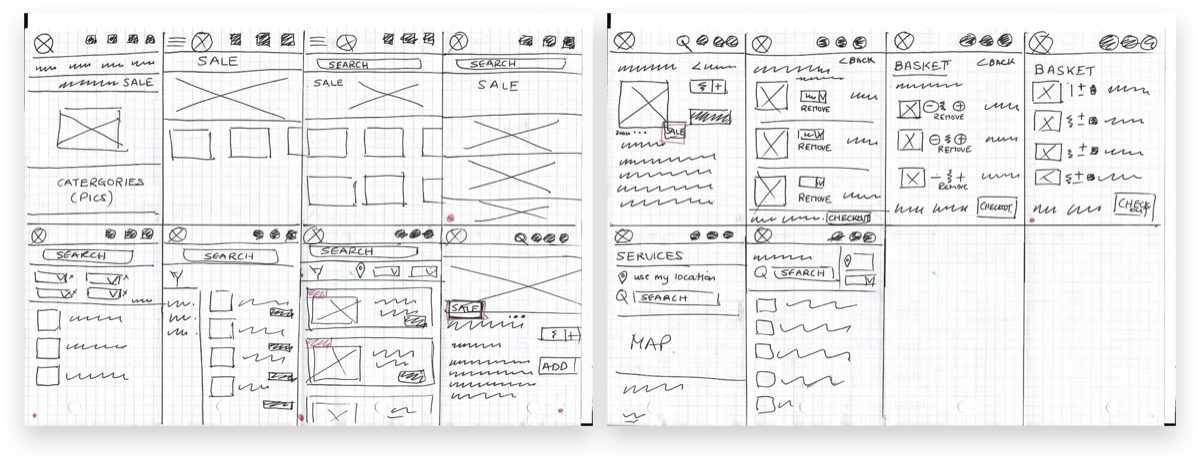 SALE
CATERGORIES
(PICS)
SALE
SEARCH
SALE
SEARCH
SALE
SEARCH
SEARCH
SEARCH
SALE
ADD
SALE
< BACK
REMOVE
REMOVE
REMOVE
CHECKOUT
BASKET
< BACK
REMOVE
REMOVE
Remove
CHECKOUT
BASKET
CHECK
OUT
SERVICES
use my location
SEARCH
MAP.
SEARCH